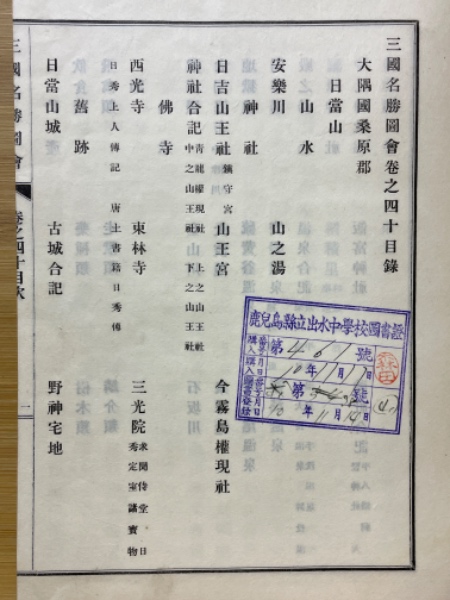 三國名勝圖會卷之四十目錄
大隅國桑原郡
日當山
山水
安樂川 山之湯
神社
日吉山王社 鎭守宮 山王宮 今霧島權現社
神社合記 青龍權現社 上之山王社 中之山王社 下之山王社
佛寺
西光寺 東林寺 三光院 求聞侍堂 日秀定室諸寳物
日秀上人傳記 唐土書籍日秀傳
舊跡
日當山城 古城合記 野神宅地
三國名勝圖會
卷之四十目次
一
鹿兒島縣立出水中學校圖書證
第461號
10年11月17日
號
10年11月14日